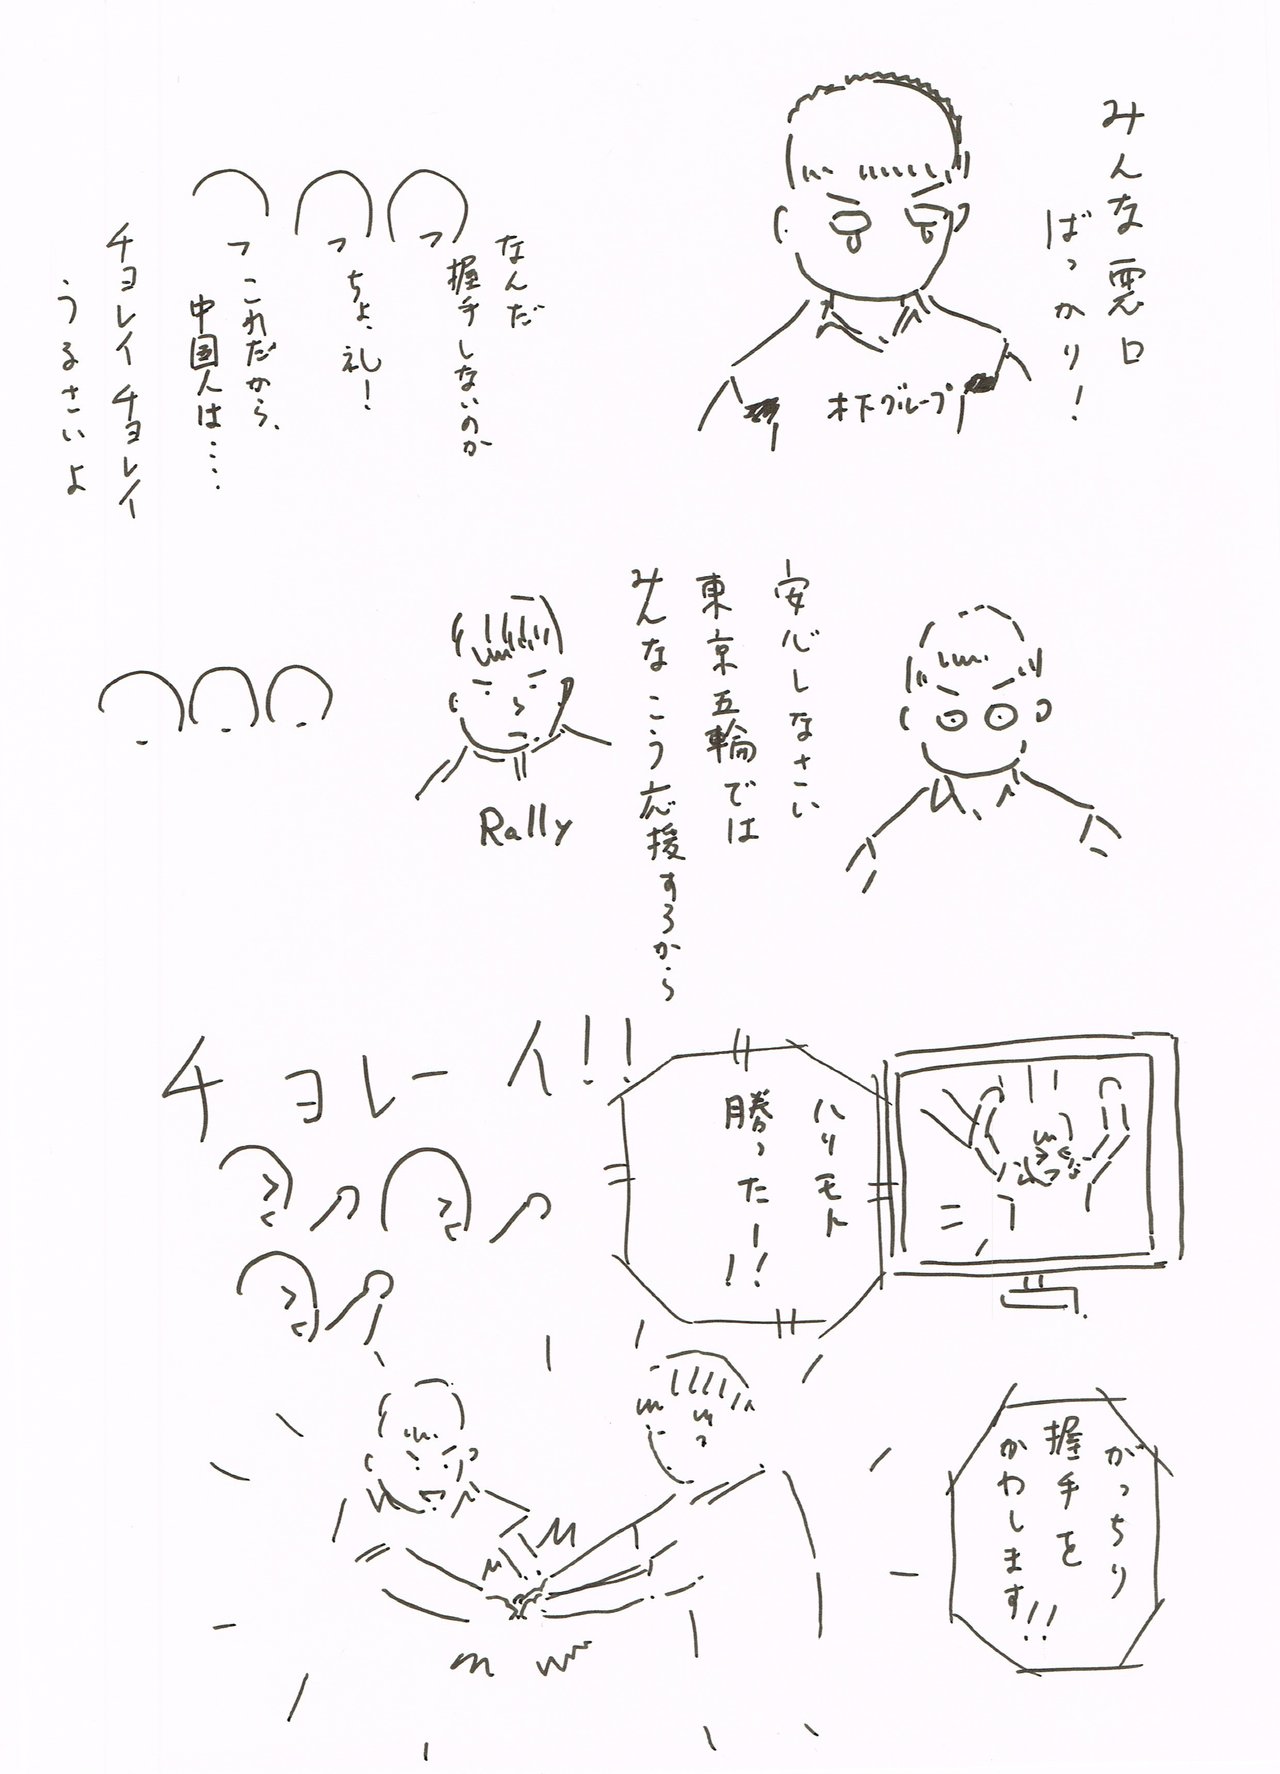 みんな悪口
ばっかり！
木下グループ
なんだ
握手しないのか
ちょ、礼！
これだから、
中国人は‥‥
チョレイチョレイ
うるさいよ
安心しなさい
東京五輪では
みんなこう応援するから
Rally
ハリモト
勝ったー！！
チョレーイ！！
がっちり
握手を
かわします！！